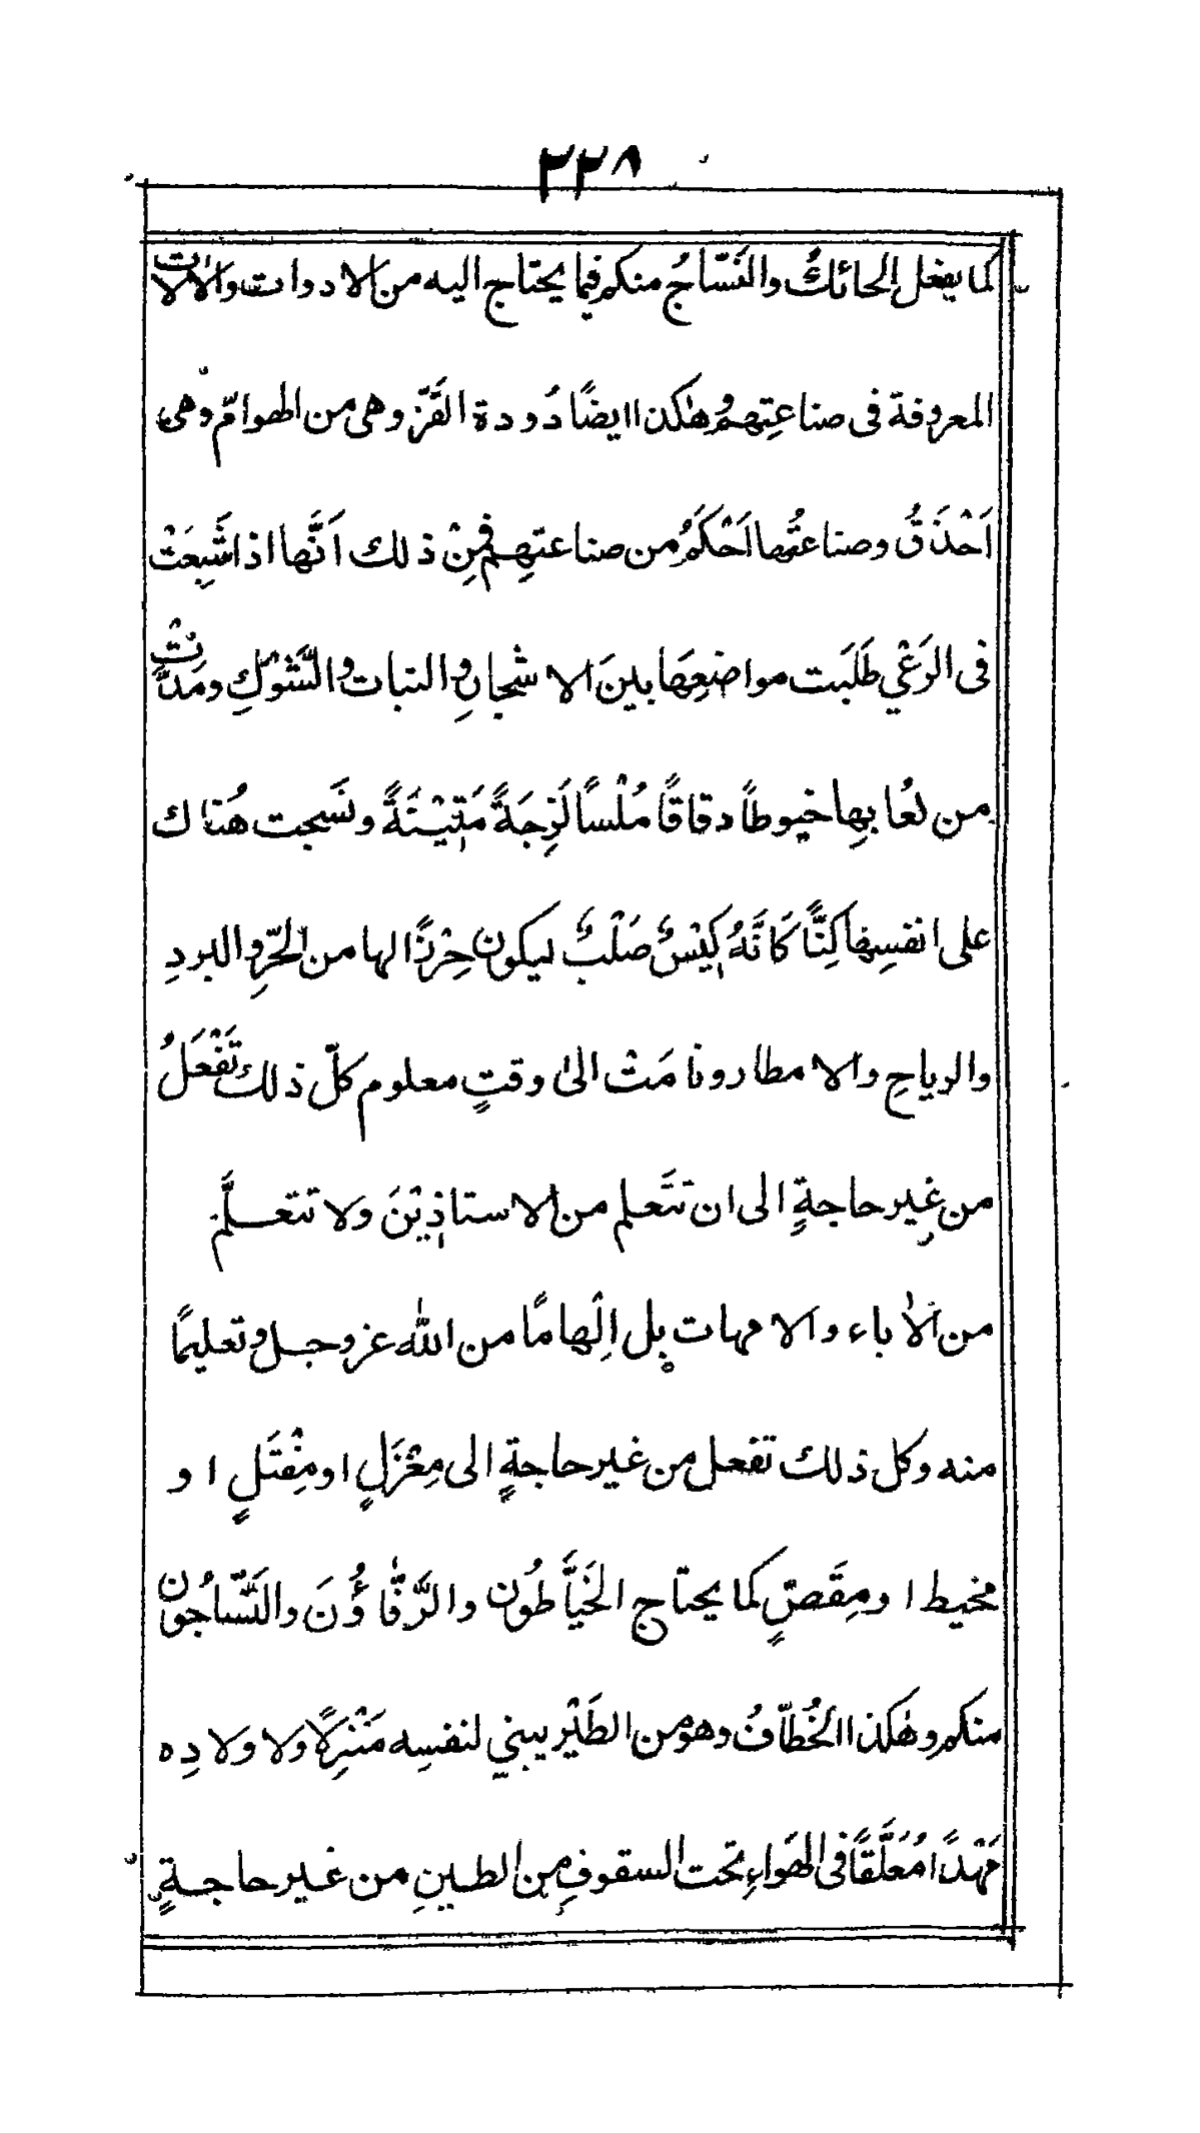 ٢٢٨
كما يفعل الحائكُ والنَسّاجُ منكم فيما يحتاج اليه من الادوات والاٰلات
المعروفة فى صناعتِهم وهٰكذا ايضًا دُودة القَزّ وهى من الهوامّ وهى
اَحْذَقُ وصناعتُها اَحْكَمُ من صناعتهِم فمِنْ ذلك اَنَّها اذا شَبِعَتْ
فى الرَعْي طَلَبَت مواضِعَها بينَ الاشجارِ والنبات والشَّوْكِ ومَدَّتْ
من لُعابِها خيوطاً دقاقًا مُلْسًا لَزِجَةً مَتِيْنَةً ونَسَجت هُناك
على انفسِها كِنًّا كَانَّهُ كِيْسٌ صَلْبٌ ليكون حِرْزًا لها من الحَرِّ والبردِ
والرياحِ والامطار ونامَتْ الىٰ وقتٍ معلوم كلّ ذلك تَفْعَلُ
من غيرحاجةٍ الى ان تتَعلم من الاستاذِيْنَ ولا تتعلَّم
من الاٰباء والامهات بل اِلْهامًا من اللّٰه عزوجل وتعليمًا
منه وكل ذلك تفعل من غيرحاجةٍ الى مِغْزَلٍ او مِفْتَلٍ او
مخيط او مِقَصٍّ كما يحتاج الخَيَّاطُون والرَّفّاؤُنَ والنَسّاجُون
منكم وهٰكذا الخُطّافُ وهو من الطَيْر يبني لنفسِه مَنْزِلًا ولاولادِه
مَهْدًا مُعَلَّقًا فى الهَواءِ تحت السقوفِ من الطينِ من غيرحاجةٍ